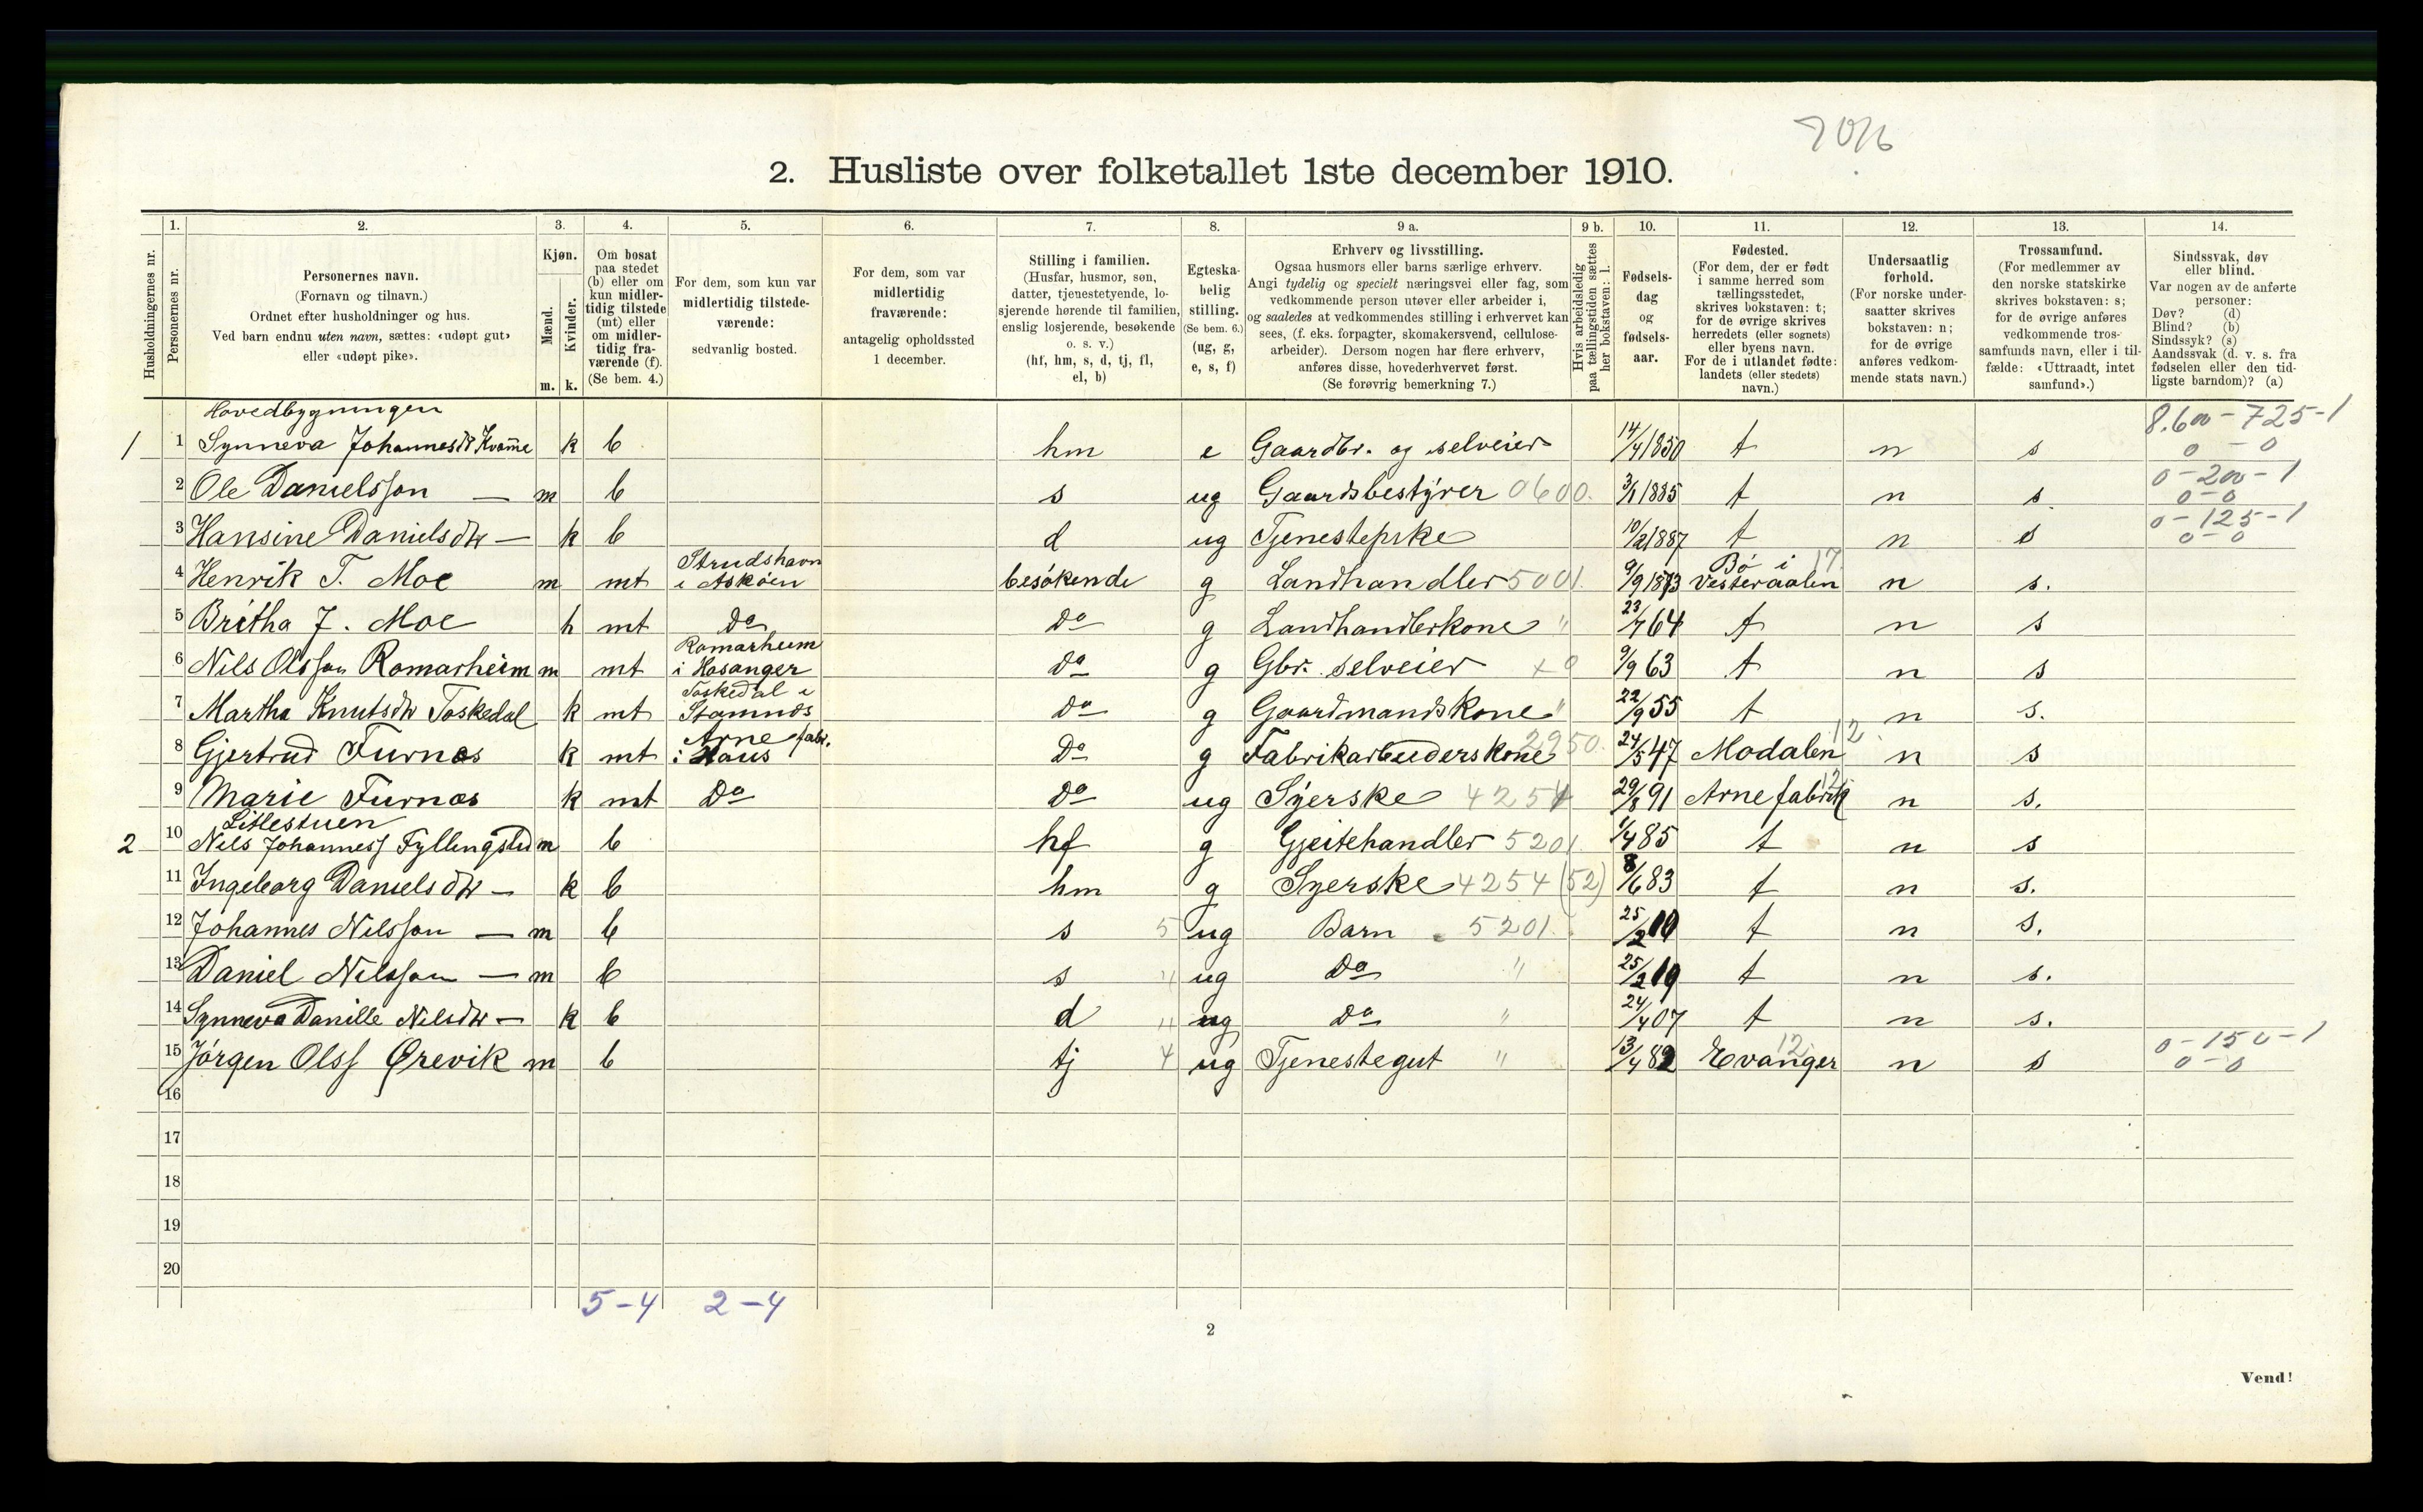 2. Husliste over folketallet 1ste december 1910.
1. 2. 3. 4. 5. 6. 7. 8. 9 a. 9 b. 10. 11. 12. 13. 14.
Husholdningernes nr.
Personernes nr.
Personernes navn.
(Fornavn og tilnavn.)
Ordnet efter husholdninger og hus.
Ved barn endnu uten navn, sættes: «udøpt gut»
eller «udøpt pike».
Kjøn.
Mænd.
Kvinder.
m. k.
Om bosat
paa stedet
(b) eller om
kun midler-
tidig tilstede
(mt) eller
om midler-
tidig fra-
værende (f).
(Se bem. 4.)
For dem, som kun var
midlertidig tilstede-
værende:
sedvanlig bosted.
For dem, som var
midlertidig
fraværende:
antagelig opholdssted
1 december.
Stilling i familien.
(Husfar, husmor, søn,
datter, tjenestetyende, lo-
sjerende hørende til familien,
enslig losjerende, besøkende
o. s. v.)
(hf, hm, s, d, tj, fl,
el, b)
Egteska-
belig
stilling.
(Se bem. 6.)
(ug, g,
e, s, f)
Erhverv og livsstilling.
Ogsaa husmors eller barns særlige erhverv.
Angi tydelig og specielt næringsvei eller fag, som
vedkommende person utøver eller arbeider i,
og saaledes at vedkommendes stilling i erhvervet kan
sees, (f. eks. forpagter, skomakersvend, cellulose-
arbeider). Dersom nogen har flere erhverv,
anføres disse, hovederhvervet først.
(Se forøvrig bemerkning 7.)
Hvis arbeidsledig
paa tællingstiden sættes
her bokstaven: l.
Fødsels-
dag
og
fødsels-
aar.
Fødested.
(For dem, der er født
i samme herred som
tællingsstedet,
skrives bokstaven: t;
for de øvrige skrives
herredets (eller sognets)
eller byens navn.
For de i utlandet fødte:
landets (eller stedets)
navn.)
Undersaatlig
forhold.
(For norske under-
saatter skrives
bokstaven: n;
for de øvrige
anføres vedkom-
mende stats navn.)
Trossamfund.
(For medlemmer av
den norske statskirke
skrives bokstaven: s;
for de øvrige anføres
vedkommende tros-
samfunds navn, eller i til-
fælde: «Uttraadt, intet
samfund».)
Sindssvak, døv
eller blind.
Var nogen av de anførte
personer:
Døv? (d)
Blind? (b)
Sindssyk? (s)
Aandssvak (d. v. s. fra
fødselen eller den tid-
ligste barndom)? (a)
Hovedbygningen
8.600-725-1
1 1 Synneva Johannesdr Kvamme k b hm e Gaardbr. og selveier 14/4 1850 t n s 0-0
0-200-1
2 Ole Danielsson — m b s ug Gaardsbestyrer 0600. 3/1 1885 t n s 0-0
0-125-1
3 Hansine Danielsdtr — k b d ug Tjenestepike 10/2 1887 t n s 0-0
Strudshavn Bø i 17
4 Henrik T. Moe m mt i Askøen besøkende g Landhandler 5001. 9/9 1873 Vesteraalen n s.
5 Britha J. Moe k mt Do Do g Landhandlerkone " 23/7 64 t n s
Romarheim
6 Nils Olsson Romarheim m mt i Hosanger Do g Gbr. selveier x0 9/9 63 t n s
Toskedal i
7 Martha Knutsdtr Toskedal k mt Stamnes Do g Gaardmandskone " 22/9 55 t n s.
Arne fabr.
8 Gjertrud Furnes k mt i Haus Do g Fabrikarbeiderskone 2950. 24/5 47 Modalen 12 n s
9 Marie Furnes k mt Do Do ug Syerske 4254 29/8 91 Arne fabrik 12 n s.
Litlestuen
2 10 Nils Johanness Fyllingslid m b hf g Gjeitehandler 5201 1/4 85 t n s
11 Ingeborg Danielsdtr — k b hm g Syerske 4254 (52) 8/6 83 t n s.
12 Johannes Nilsson — m b s 5 ug Barn 5201. 25/2 10 t n s.
13 Daniel Nilsson — m b s " ug Do " 25/2 10 t n s.
14 Synneva Danille Nilsdtr — k b d " ug Do " 24/4 07 t n s.
0-150-1
15 Jørgen Olss Ørevik m b tj 4 ug Tjenestegut " 13/4 82 Evanger 12 n s 0-0
16
17
18
19
20
5-4 2-4
2
Vend!